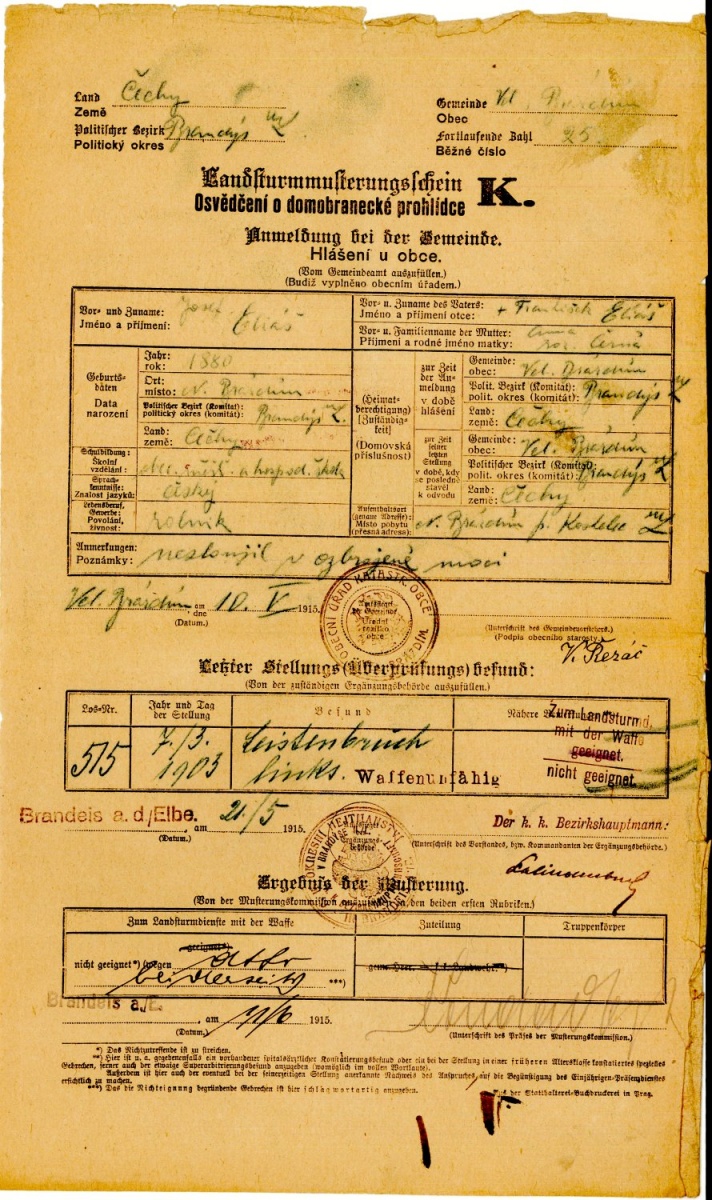 Land Čechy
Země
Politischer Bezirk Brandýs n/L
Politický okres
Gemeinde Vel. Brázdim
Obec
Fortlaufende Zahl 25.
Běžné číslo
Landsturmmusterungsschein K.
Osvědčení o domobranecké prohlídce
Anmeldung bei der Gemeinde.
Hlášení u obce.
(Vom Gemeindeamt auszufüllen.)
(Budiž vyplněno obecním úřadem.)
Vor- und Zuname: Josef
Jméno a příjmení: Eliáš
Vor- u. Zuname des Vaters: + František Eliáš
Jméno a příjmení otce:
Vor- u. Familienname der Mutter: Anna
Příjmení a rodné jméno matky: roz. Černá
Geburtsdaten
Data narození
Jahr: 1880
rok:
Ort:
místo: V. Brázdim
Politischer Bezirk (Komitat): Brandýs n/L.
politický okres (komitát):
Land: Čechy
země:
Schulbildung:
Školní vzdělání: obec. měšť. a hospod. škola
Sprachkenntnisse: česky
Znalost jazyků:
Lebensberuf, Gewerbe: rolník
Povolání, živnost:
(Heimatberechtigung)
[Zuständigkeit]
(Domovská příslušnost)
zur Zeit der Anmeldung
v době hlášení
Gemeinde: Vel. Brázdim
obec:
Polit. Bezirk (Komitat): Brandýs n/L
polit. okres (komitát):
Land: Čechy
země:
zur Zeit seiner letzten Stellung
v době, kdy se posledně stavěl k odvodu
Gemeinde: Vel. Brázdim
obec:
Politischer Bezirk (Komitat): Brandýs n/L
politický okres (komitát):
Land: Čechy
země:
Aufenthaltsort (genaue Adresse): V. Brázdim p. Kostelec n/L
Místo pobytu (přesná adresa):
Anmerkungen: nesloužil v ozbrojené moci
Poznámky:
Vel. Brázdim am dne 10. V 1915.
(Datum.)
(Unterschrift des Gemeindevorstehers.)
(Podpis obecního starosty.)
V. Řezáč
OBECNÍ ÚŘAD KATASTR. OBCE
Letzter Stellungs(Überprüfungs)befund:
(Von der zuständigen Ergänzungsbehörde auszufüllen.)
Los-Nr.
Jahr und Tag der Stellung
Befund
515
7./3. 1903
Leistenbruch links. Waffenunfähig
Zum Landsturmd.
mit der Waffe
geeignet.
nicht geeignet.
Brandeis a. d./Elbe., am 21/5 1915.
(Datum.)
Der k. k. Bezirkshauptmann:
(Unterschrift des Vorstandes, bzw. Kommandanten der Ergänzungsbehörde.)
Ergebnis der Musterung.
(Von der Musterungskommission auszufüllen, in den beiden ersten Rubriken.)
Zum Landsturmdienste mit der Waffe
Zuteilung
Truppenkörper
geeignet*)
nicht geeignet*) wegen
beiderseits ***)
Brandeis a./E., am 1915.
(Datum.)
(Unterschrift des Präses der Musterungskommission.)
*) Das Nichtzutreffende ist zu streichen.
**) Hier ist u. a. gegebenenfalls ein vorhandener spitalsärztlicher Konstatierungsbefund oder ein bei der Stellung in einer früheren Altersklasse konstatiertes spezielles
Gebrechen, ferner auch der etwaige Superarbitrierungsbefund anzugeben (womöglich im vollen Wortlaute).
Außerdem ist hier auch der eventuell bei der seinerzeitigen Stellung anerkannte Nachweis des Anspruches auf die Begünstigung des Einjährigen-Präsenzdienstes
ersichtlich zu machen.
***) Das die Nichteignung begründende Gebrechen ist hier schlagwortartig anzugeben.
Statthalterei-Buchdruckerei in Prag.